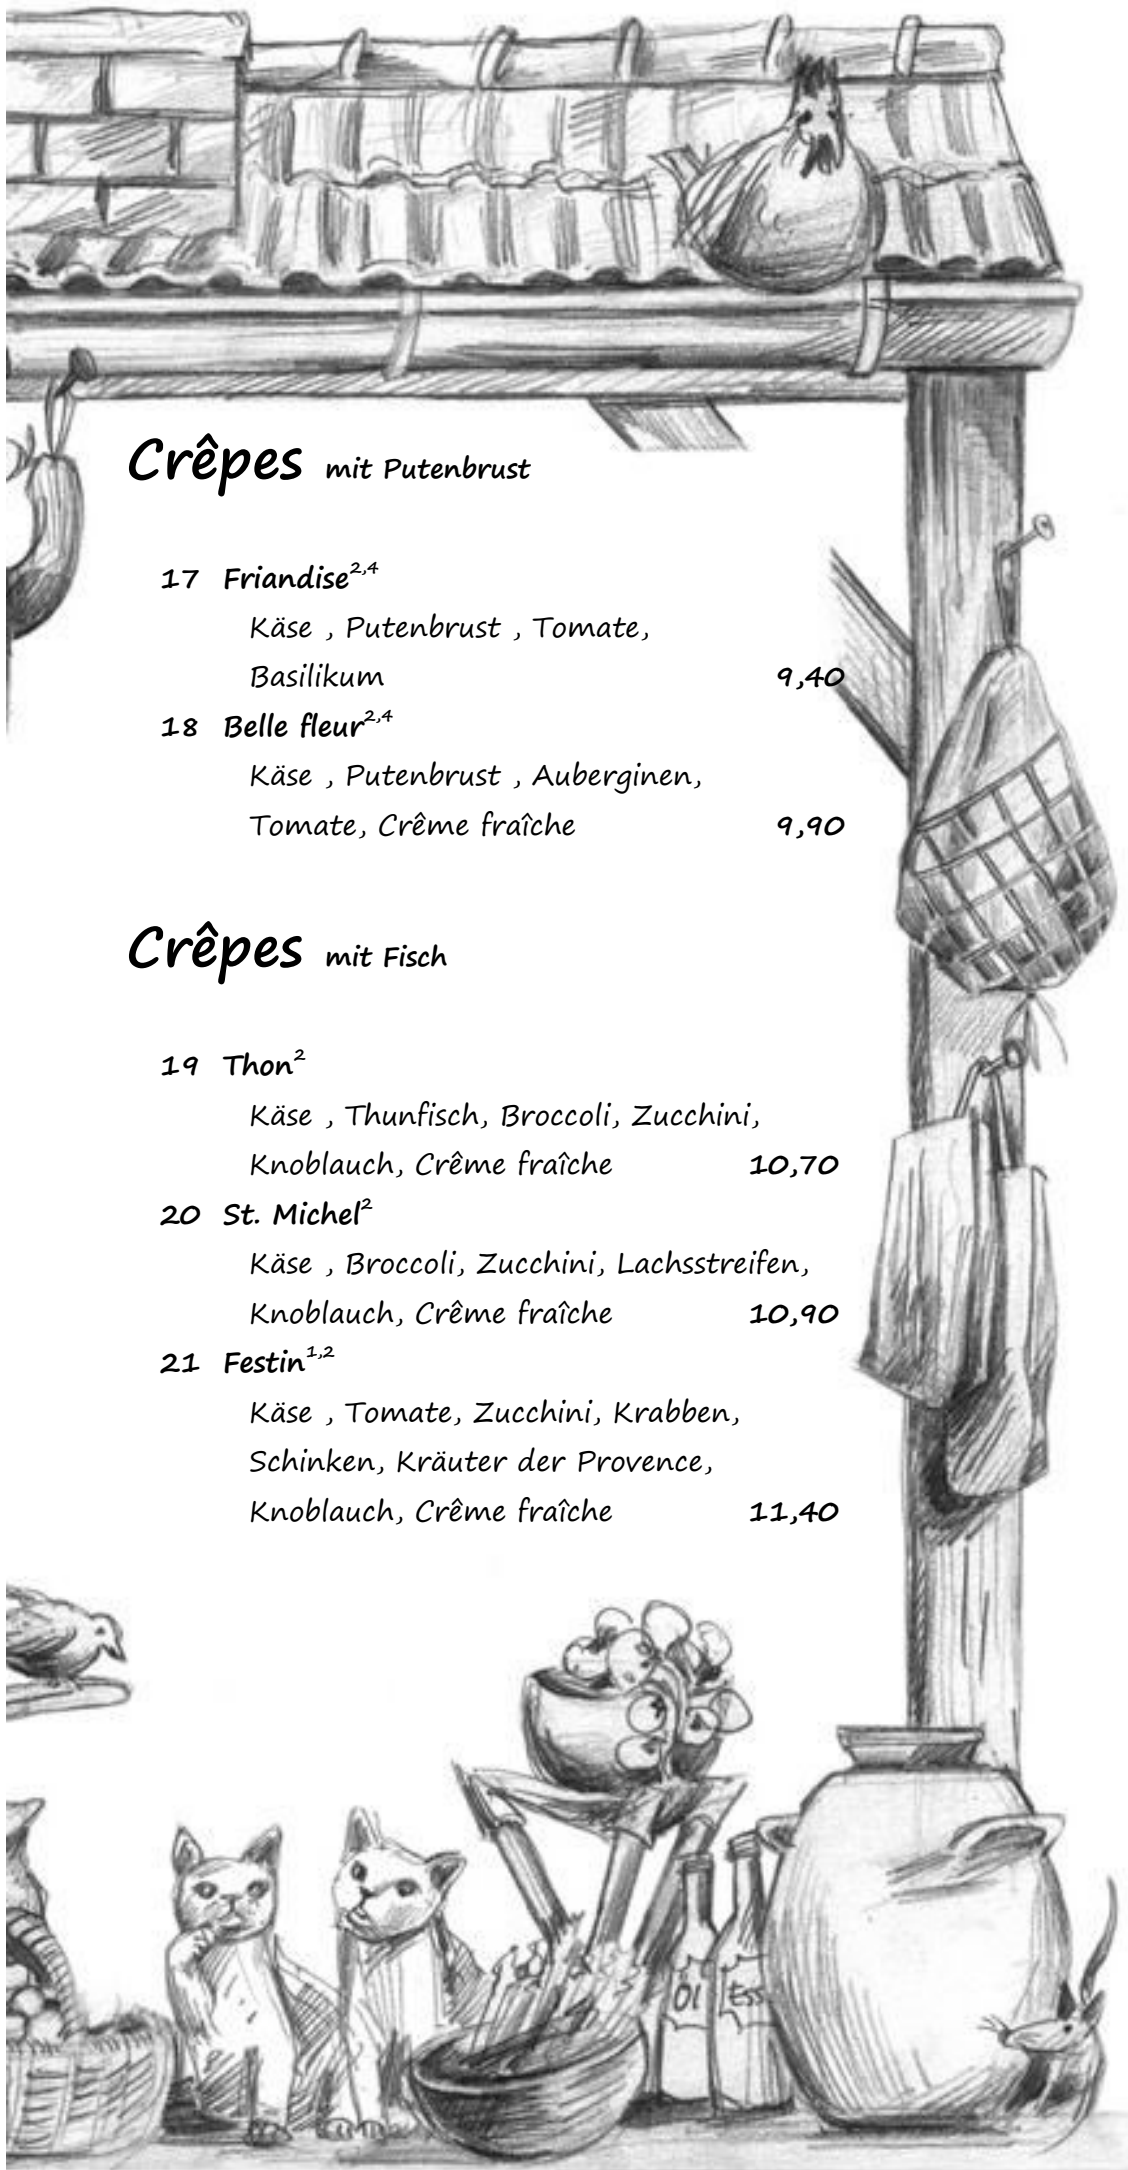 Crêpes mit Putenbrust
17 Friandise2,4
Käse , Putenbrust , Tomate,
Basilikum 9,40
18 Belle fleur2,4
Käse , Putenbrust , Auberginen,
Tomate, Crême fraîche 9,90
Crêpes mit Fisch
19 Thon2
Käse , Thunfisch, Broccoli, Zucchini,
Knoblauch, Crême fraîche 10,70
20 St. Michel2
Käse , Broccoli, Zucchini, Lachsstreifen,
Knoblauch, Crême fraîche 10,90
21 Festin1,2
Käse , Tomate, Zucchini, Krabben,
Schinken, Kräuter der Provence,
Knoblauch, Crême fraîche 11,40
Öl Ess